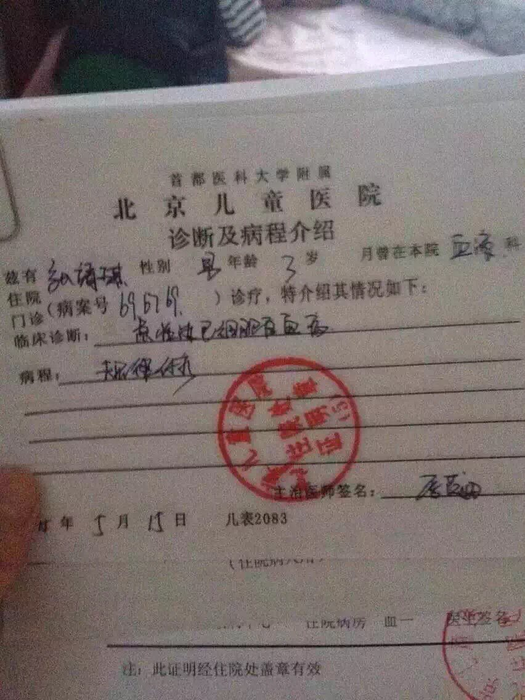 首都医科大学附属
北京儿童医院
诊断及病程介绍
兹有 性别 男 年龄 3 岁 月曾在本院 血液 科
住院
门诊（病案号 696769 ）诊疗，特介绍其情况如下：
临床诊断： 急性淋巴细胞白血病
病程： 规律化疗
儿童医院
住院处
证明章
主治医师签名：
年 5 月 15 日 儿表2083
住院病房 血一
注：此证明经住院处盖章有效